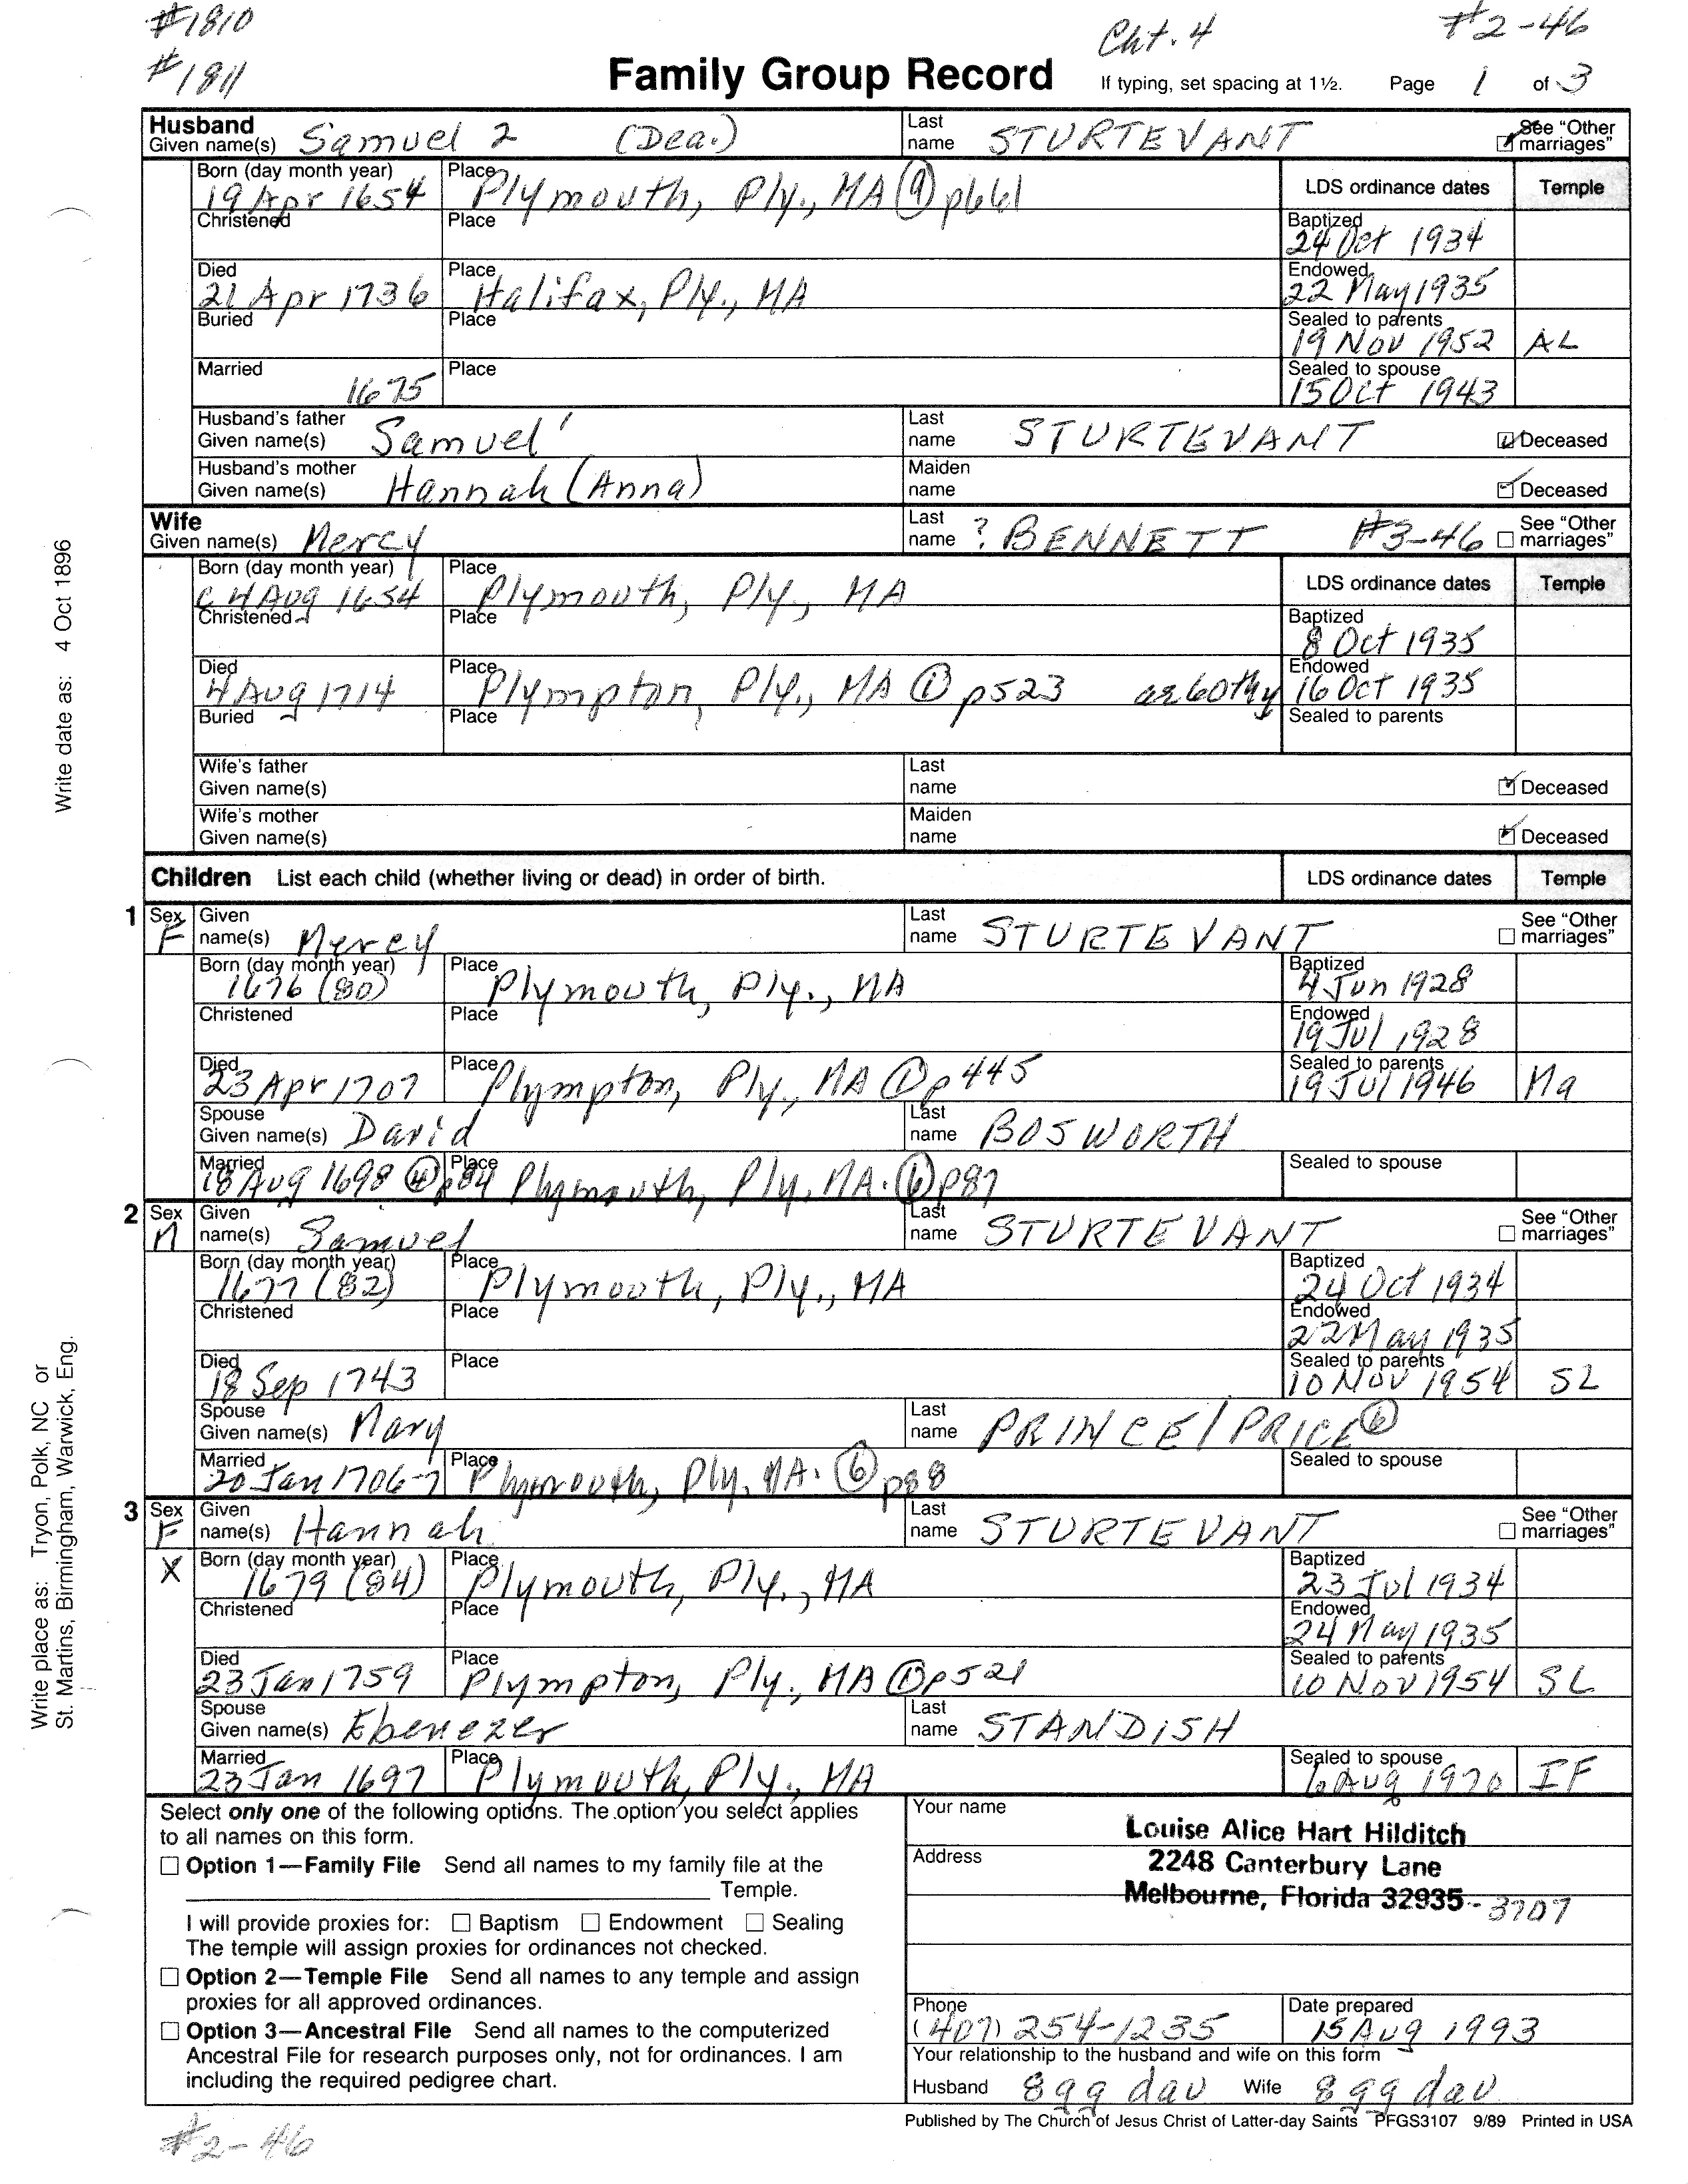 #1810
#1811
Cht. 4
#2-46
Family Group Record
If typing, set spacing at 1½. Page 1 of 3
Husband
Given name(s) Samuel 2 (Dea.) Last name STURTEVANT See "Other marriages"
Born (day month year) 19 Apr 1654 Place Plymouth, Ply., MA (9) p661 LDS ordinance dates Temple
Christened Place Baptized 24 Oct 1934
Died 21 Apr 1736 Place Halifax, Ply., MA Endowed 22 May 1935
Buried Place Sealed to parents 19 Nov 1952 AL
Married 1675 Place Sealed to spouse 15 Oct 1943
Husband's father Given name(s) Samuel' Last name STURTEVANT Deceased
Husband's mother Given name(s) Hannah (Anna) Maiden name Deceased
Wife
Given name(s) Mercy Last name ? BENNETT #3-46 See "Other marriages"
Born (day month year) c 4 Aug 1654 Place Plymouth, Ply., MA LDS ordinance dates Temple
Christened Place Baptized 8 Oct 1935
Died 4 Aug 1714 Place Plympton, Ply., MA (1) p523 ae 60thy Endowed 16 Oct 1935
Buried Place Sealed to parents
Wife's father Given name(s) Last name Deceased
Wife's mother Given name(s) Maiden name Deceased
Children List each child (whether living or dead) in order of birth. LDS ordinance dates Temple
1 Sex F Given name(s) Mercy Last name STURTEVANT See "Other marriages"
Born (day month year) 1676 (80) Place Plymouth, Ply., MA Baptized 4 Jun 1928
Christened Place Endowed 19 Jul 1928
Died 23 Apr 1707 Place Plympton, Ply., MA (1) p445 Sealed to parents 19 Jul 1946 Ma
Spouse Given name(s) David Last name BOSWORTH
Married 18 Aug 1698 (4) p84 Place Plymouth, Ply, MA. (6) p87 Sealed to spouse
2 Sex M Given name(s) Samuel Last name STURTEVANT See "Other marriages"
Born (day month year) 1677 (82) Place Plymouth, Ply., MA Baptized 24 Oct 1934
Christened Place Endowed 22 May 1935
Died 18 Sep 1743 Place Sealed to parents 10 Nov 1954 SL
Spouse Given name(s) Mary Last name PRINCE/PRICE (6)
Married 20 Jan 1706-7 Place Plymouth, Ply, MA. (6) p88 Sealed to spouse
3 Sex F Given name(s) Hannah Last name STURTEVANT See "Other marriages"
X Born (day month year) 1679 (84) Place Plymouth, Ply., MA Baptized 23 Jul 1934
Christened Place Endowed 24 May 1935
Died 23 Jan 1759 Place Plympton, Ply., MA (1) p521 Sealed to parents 10 Nov 1954 SL
Spouse Given name(s) Ebenezer Last name STANDISH
Married 23 Jan 1697 Place Plymouth, Ply., MA Sealed to spouse 6 Aug 1970 IF
Write date as: 4 Oct 1896
Write place as: Tryon, Polk, NC or
St. Martins, Birmingham, Warwick, Eng.
Select only one of the following options. The option you select applies
to all names on this form.
Option 1—Family File Send all names to my family file at the
Temple.
I will provide proxies for: Baptism Endowment Sealing
The temple will assign proxies for ordinances not checked.
Option 2—Temple File Send all names to any temple and assign
proxies for all approved ordinances.
Option 3—Ancestral File Send all names to the computerized
Ancestral File for research purposes only, not for ordinances. I am
including the required pedigree chart.
Your name Louise Alice Hart Hilditch
Address 2248 Canterbury Lane
Melbourne, Florida 32935-3707
Phone (407) 254-1235 Date prepared 15 Aug 1993
Your relationship to the husband and wife on this form
Husband 8 gg dau Wife 8 gg dau
Published by The Church of Jesus Christ of Latter-day Saints PFGS3107 9/89 Printed in USA
#2-46